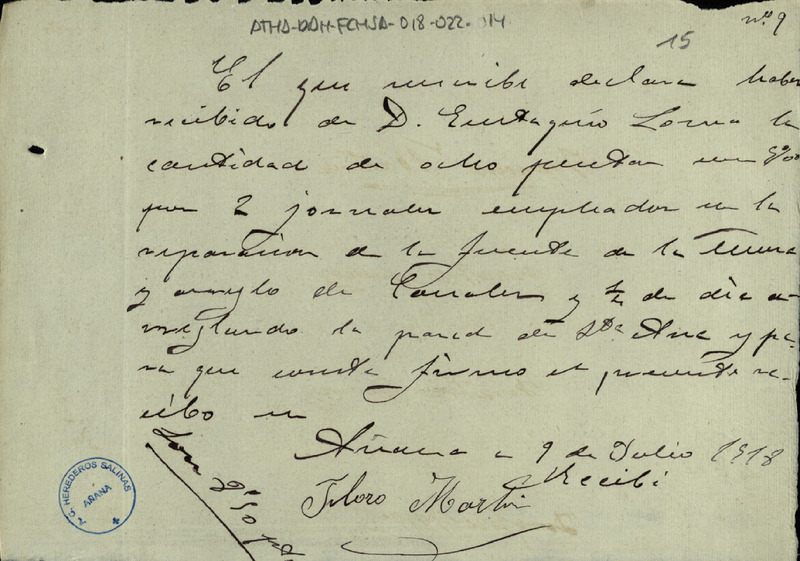 ATHA-DAH-FCHSA-018-022-014
nº 9
15
El que suscribe declara haber
recibido de D. Eustaquio Lorza la
cantidad de ocho pesetas
por 2 jornales empleados en la
reparación de la fuente de la
y arreglo de Canales y ½ de día a-
rreglando la pared de Sta Ana y pa-
ra que conste firmo el presente re-
cibo en
Añana a 9 de Julio 1918
Recibí
Martin
Son 8'50 pts
HEREDEROS SALINAS
AÑANA